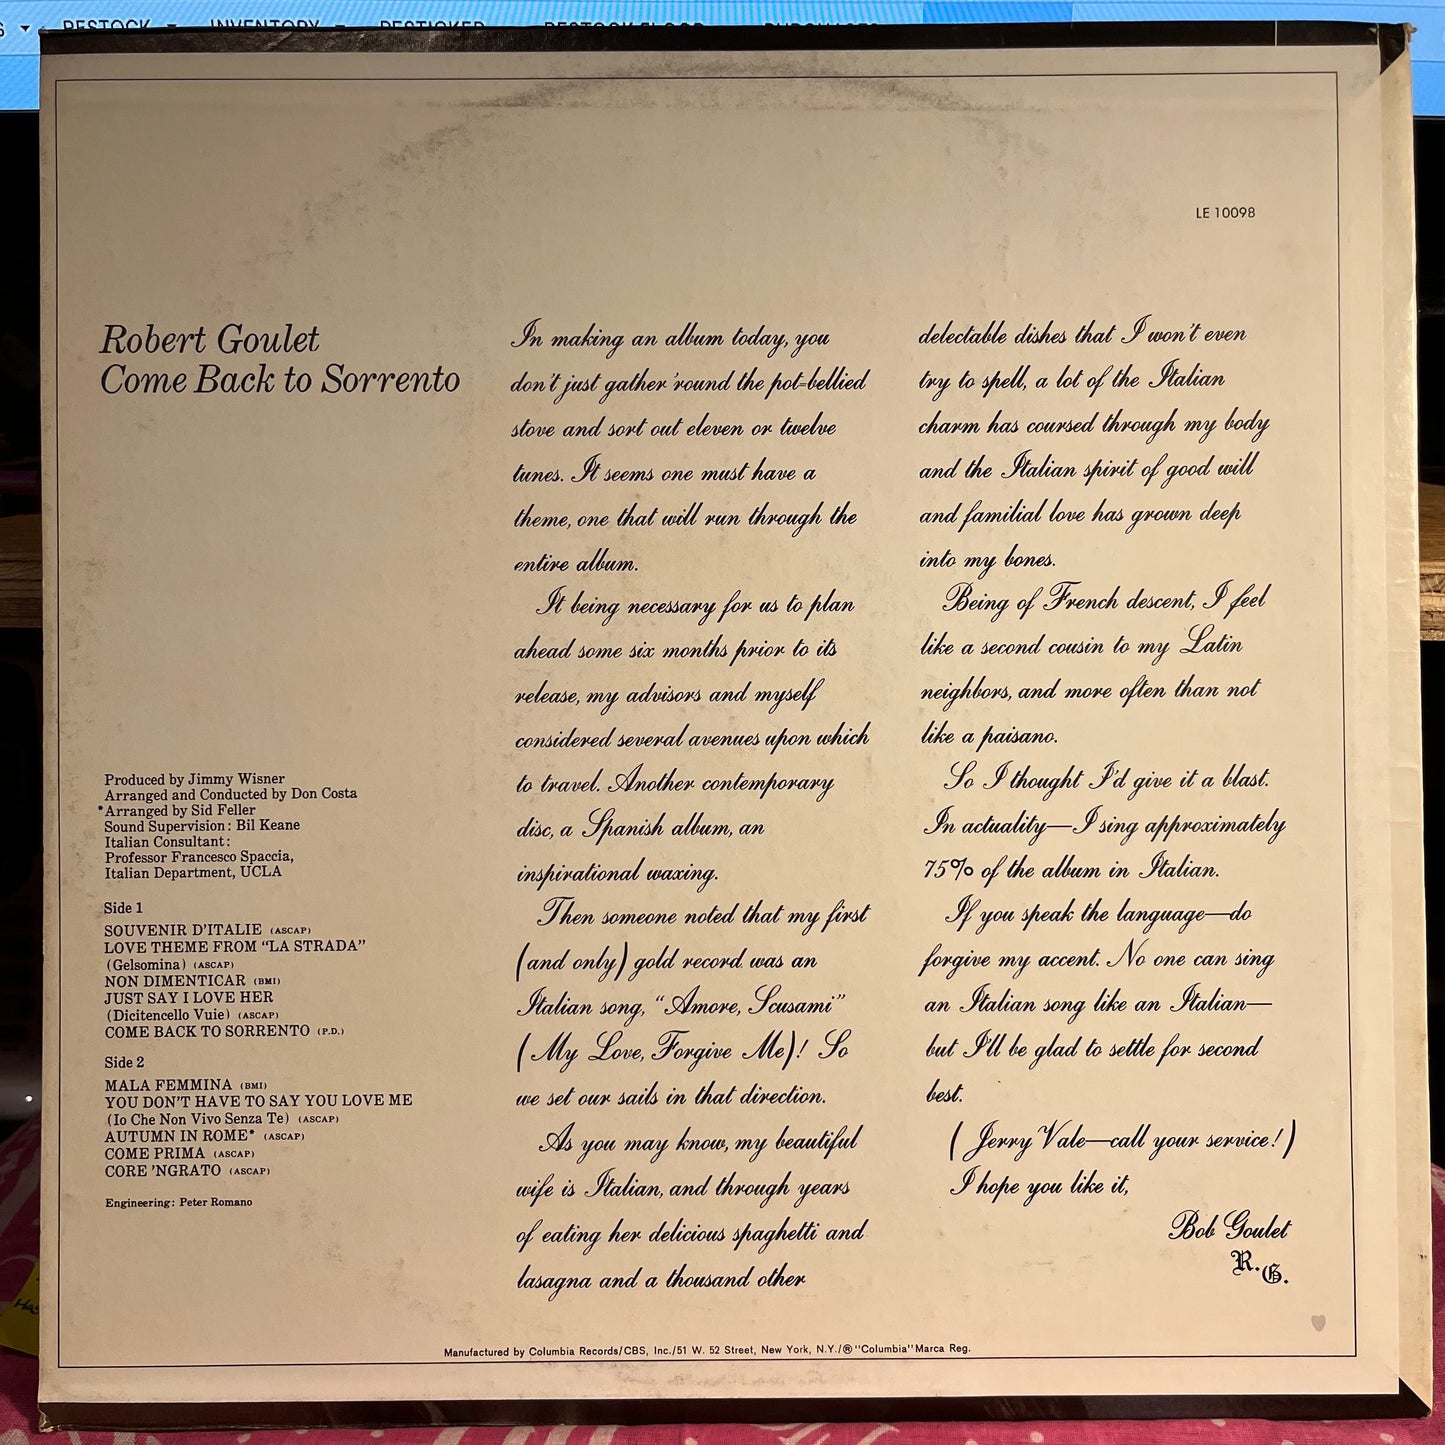 RESTOCK
INVENTORY
RESTICKER
RESTOCK FLOOR
PURCHASES
LE 10098
Robert Goulet
Come Back to Sorrento
Produced by Jimmy Wisner
Arranged and Conducted by Don Costa
*Arranged by Sid Feller
Sound Supervision: Bil Keane
Italian Consultant:
Professor Francesco Spaccia,
Italian Department, UCLA
Side 1
SOUVENIR D'ITALIE (ASCAP)
LOVE THEME FROM "LA STRADA"
(Gelsomina) (ASCAP)
NON DIMENTICAR (BMI)
JUST SAY I LOVE HER
(Dicitencello Vuie) (ASCAP)
COME BACK TO SORRENTO (P.D.)
Side 2
MALA FEMMINA (BMI)
YOU DON'T HAVE TO SAY YOU LOVE ME
(Io Che Non Vivo Senza Te) (ASCAP)
AUTUMN IN ROME* (ASCAP)
COME PRIMA (ASCAP)
CORE 'NGRATO (ASCAP)
Engineering: Peter Romano
In making an album today, you
don't just gather 'round the pot-bellied
stove and sort out eleven or twelve
tunes. It seems one must have a
theme, one that will run through the
entire album.
It being necessary for us to plan
ahead some six months prior to its
release, my advisors and myself
considered several avenues upon which
to travel. Another contemporary
disc, a Spanish album, an
inspirational waxing.
Then someone noted that my first
(and only) gold record was an
Italian song, "Amore, Scusami"
(My Love, Forgive Me)! So
we set our sails in that direction.
As you may know, my beautiful
wife is Italian, and through years
of eating her delicious spaghetti and
lasagna and a thousand other
delectable dishes that I won't even
try to spell, a lot of the Italian
charm has coursed through my body
and the Italian spirit of good will
and familial love has grown deep
into my bones.
Being of French descent, I feel
like a second cousin to my Latin
neighbors, and more often than not
like a paisano.
So I thought I'd give it a blast.
In actuality—I sing approximately
75% of the album in Italian.
If you speak the language—do
forgive my accent. No one can sing
an Italian song like an Italian—
but I'll be glad to settle for second
best.
(Jerry Vale—call your service!)
I hope you like it,
Bob Goulet
R.G.
Manufactured by Columbia Records/CBS, Inc./51 W. 52 Street, New York, N.Y./® "Columbia" Marca Reg.